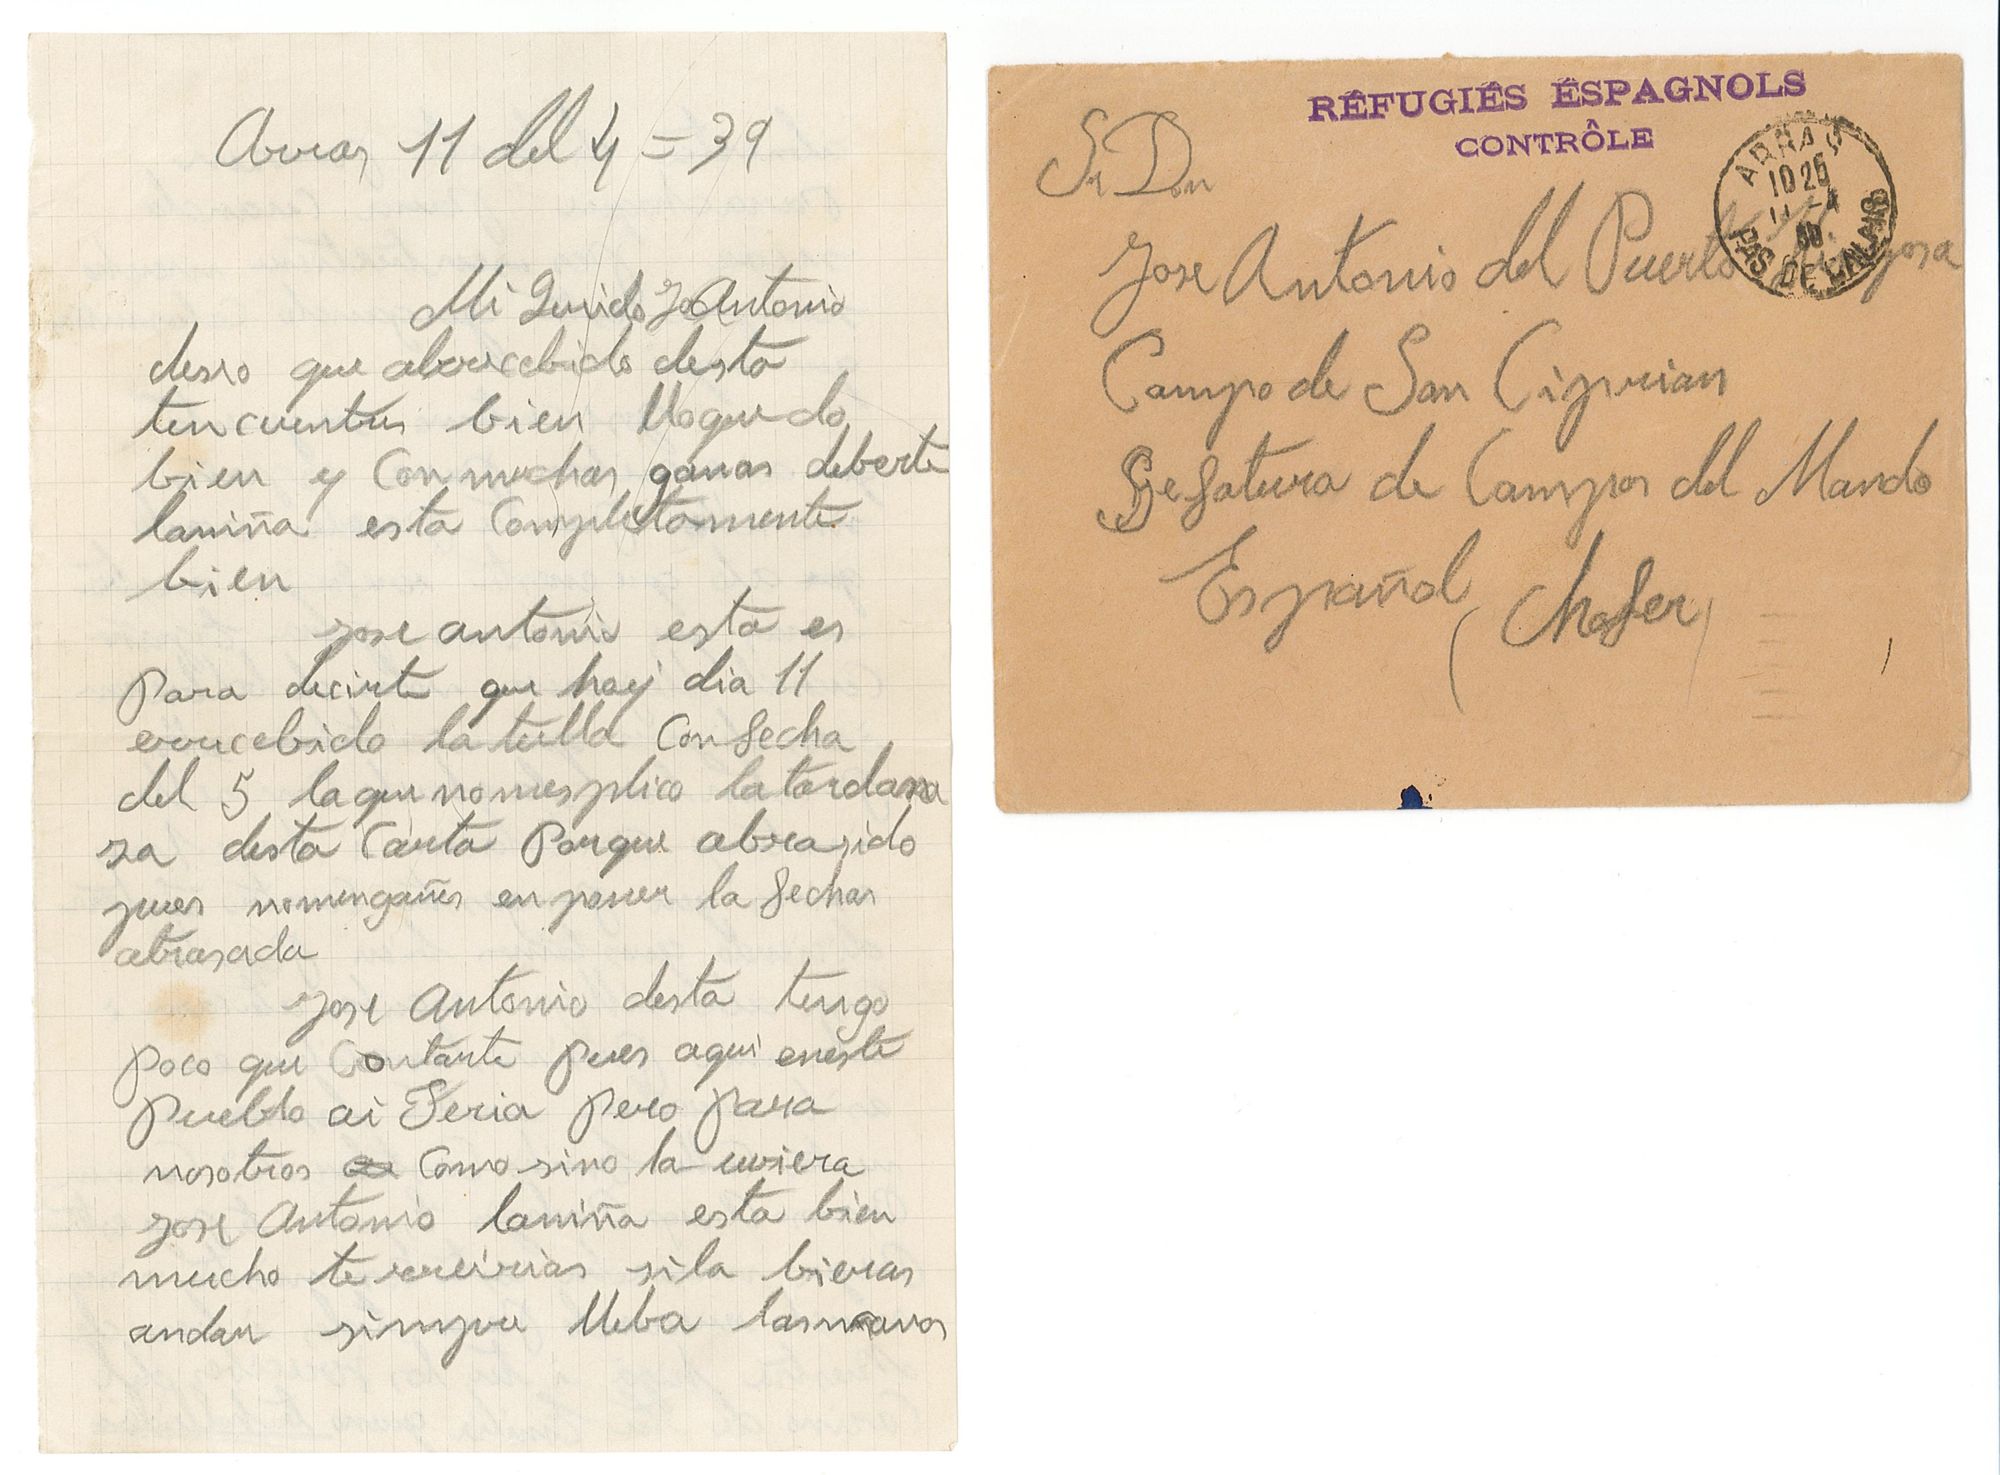 Arras 11 del 4 = 39
Mi Querido Jo Antonio
deseo que alrrecebido desta
tencuentres bien lloquedo
bien y Con muchas ganas deberte
laniña esta Completamente
bien
Jose antonio esta es
Para decirte que hay dia 11
errecebido latulla Con fecha
del 5 laque nomesplico latardan
za desta Carta Porque
pues nomengañes en poner la fechas
atrasada
Jose Antonio desta tengo
poco que Contarte pues aqui eneste
Pueblo ai Feria pero para
nosotros Como sino la uviera
Jose Antonio laniña esta bien
mucho te sila bieras
andar siempre lleba lasmanos
RÉFUGIÉS ÉSPAGNOLS
CONTRÔLE
ARRAS
10 25
11 - 4
PAS DE CALAIS
Sr Don
Jose Antonio del Puerto
Campo de San Ciprian
Gefatura de Campos del Mando
Español (Chofer)